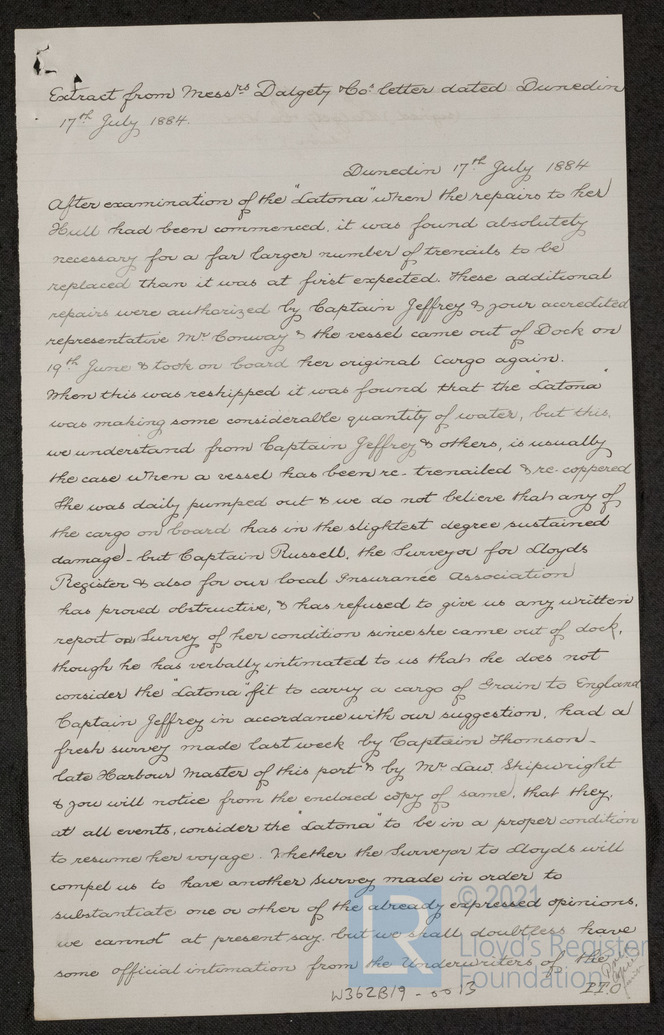 Extract from Messrs Dalgety & Cos letter dated Dunedin
17th July 1884.
Dunedin 17th July 1884
After examination of the "Latona" when the repairs to her
Hull had been commenced, it was found absolutely
necessary for a far larger number of trenails to be
replaced than it was at first expected. These additional
repairs were authorized by Captain Jeffrey & your accredited
representative Mr Conway & the vessel came out of Dock on
19th June & took on board her original Cargo again.
When this was reshipped it was found that the "Latona"
was making some considerable quantity of water, but this,
we understand from Captain Jeffrey & others, is usually
the case when a vessel has been re-trenailed & re-coppered
She was daily pumped out & we do not believe that any of
the cargo on board has in the slightest degree sustained
damage - but Captain Russell, the Surveyor for Lloyds
Register & also for our local Insurance Association
has proved obstructive, & has refused to give us any written
report on Survey of her condition since she came out of dock,
though he has verbally intimated to us that he does not
consider the "Latona" fit to carry a cargo of Grain to England
Captain Jeffrey in accordance with our suggestion, had a
fresh survey made last week by Captain Thomson -
late Harbour Master of this port & by Mr Law, Shipwright
& you will notice from the enclosed copy of same, that they,
at all events, consider the "Latona" to be in a proper condition
to resume her voyage. Whether the Surveyor to Lloyds will
compel us to have another survey made in order to
substantiate one or other of the already expressed opinions,
we cannot at present say, but we shall doubtless have
some official intimation from the Underwriters of the
P.T.O
W362B19-0013
© 2021
Lloyd's Register
Foundation